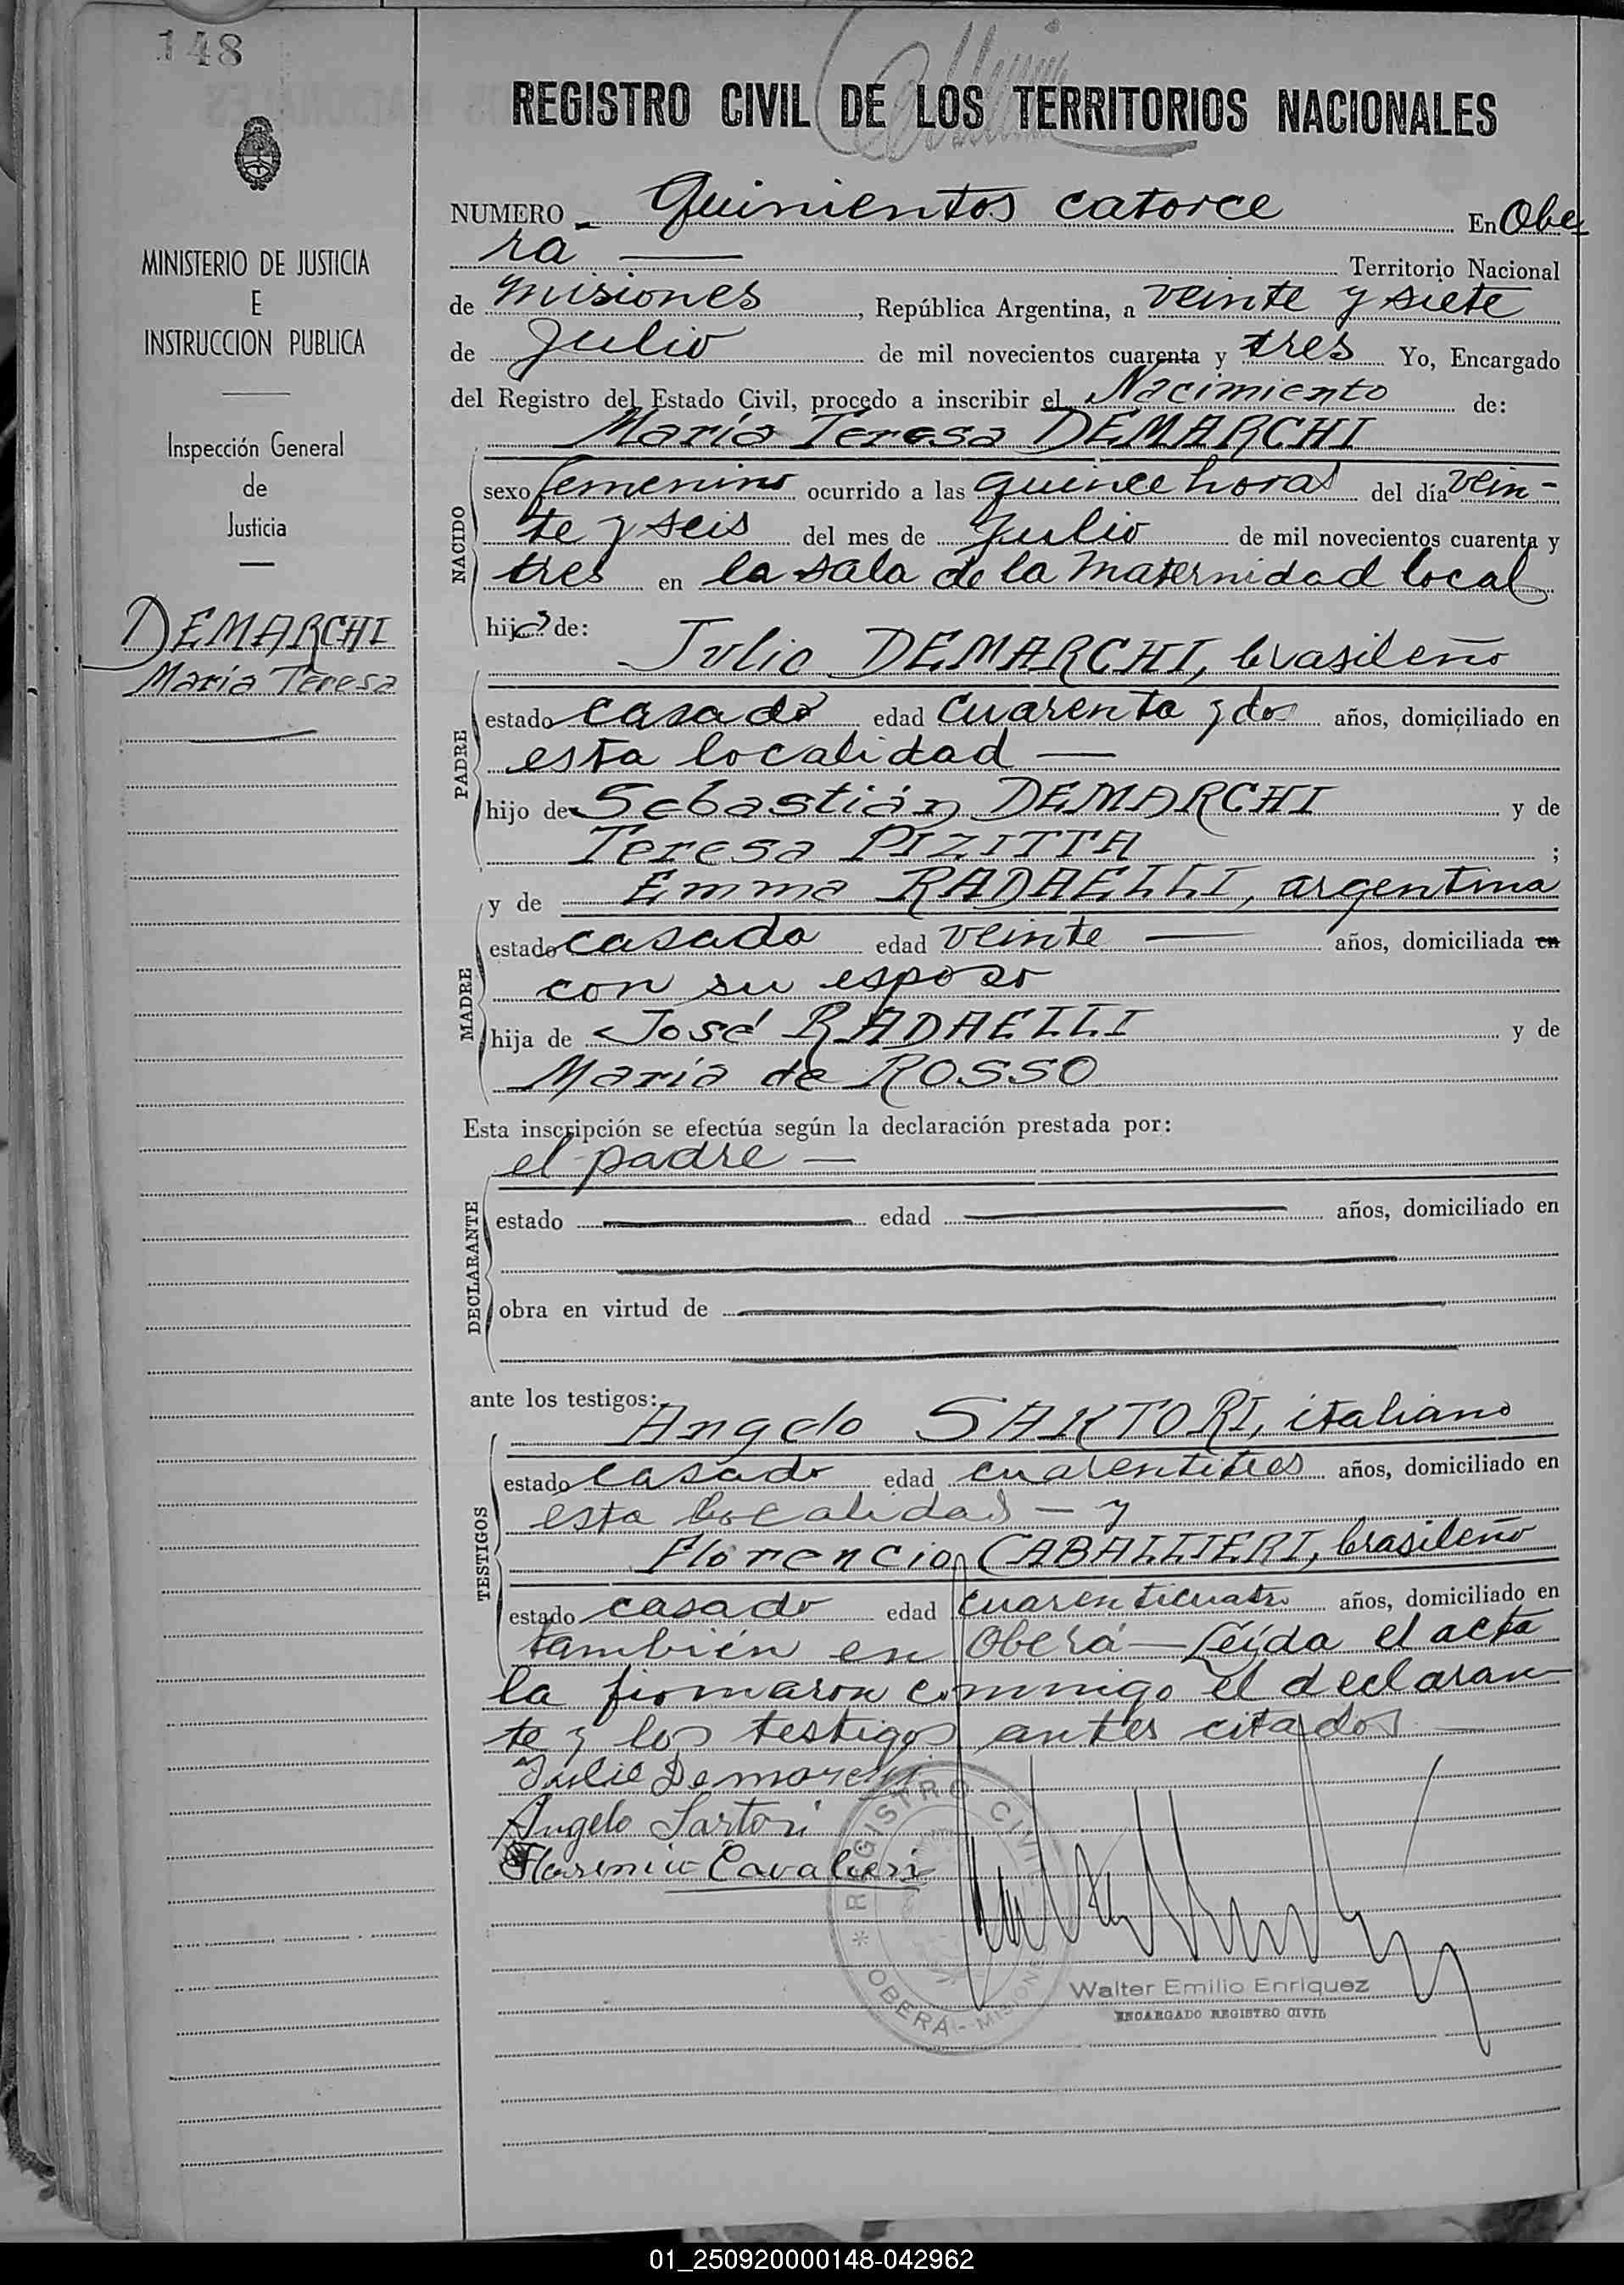 148
REGISTRO CIVIL DE LOS TERRITORIOS NACIONALES
MINISTERIO DE JUSTICIA
E
INSTRUCCION PUBLICA
Inspección General
de
Justicia
DEMARCHI
María Teresa
NUMERO Quinientos catorce En Obe-
rá Territorio Nacional
de misiones, República Argentina, a veinte y siete
de Julio de mil novecientos cuarenta y tres Yo, Encargado
del Registro del Estado Civil, procedo a inscribir el Nacimiento de:
María Teresa DEMARCHI
NACIDO
sexo femenino ocurrido a las quince horas del día vein-
te y seis del mes de Julio de mil novecientos cuarenta y
tres en la sala de la Maternidad local
hija de:
Julio DEMARCHI, brasileño
PADRE
estado casado edad cuarenta y dos años, domiciliado en
esta localidad —
hijo de Sebastián DEMARCHI y de
Teresa PIZITTA ;
y de Emma RADAELLI, argentina
MADRE
estado casada edad veinte — años, domiciliada en
con su esposo
hija de José RADAELLI y de
María de ROSSO
Esta inscripción se efectúa según la declaración prestada por:
el padre —
DECLARANTE
estado edad años, domiciliado en
obra en virtud de
ante los testigos:
Angelo SARTORI, italiano
TESTIGOS
estado casado edad cuarentitres años, domiciliado en
esta localidad — y
Florencio CABALLIERI, brasileño
estado casado edad cuarenticuatro años, domiciliado en
también en Oberá — Leída el acta
la firmaron conmigo el declaran-
te y los testigos antes citados —
Julio Demarchi
Angelo Sartori
Florencio Cavalieri
REGISTRO CIVIL
* OBERÁ - MISIONES
Walter Emilio Enriquez
ENCARGADO REGISTRO CIVIL
01_250920000148-042962